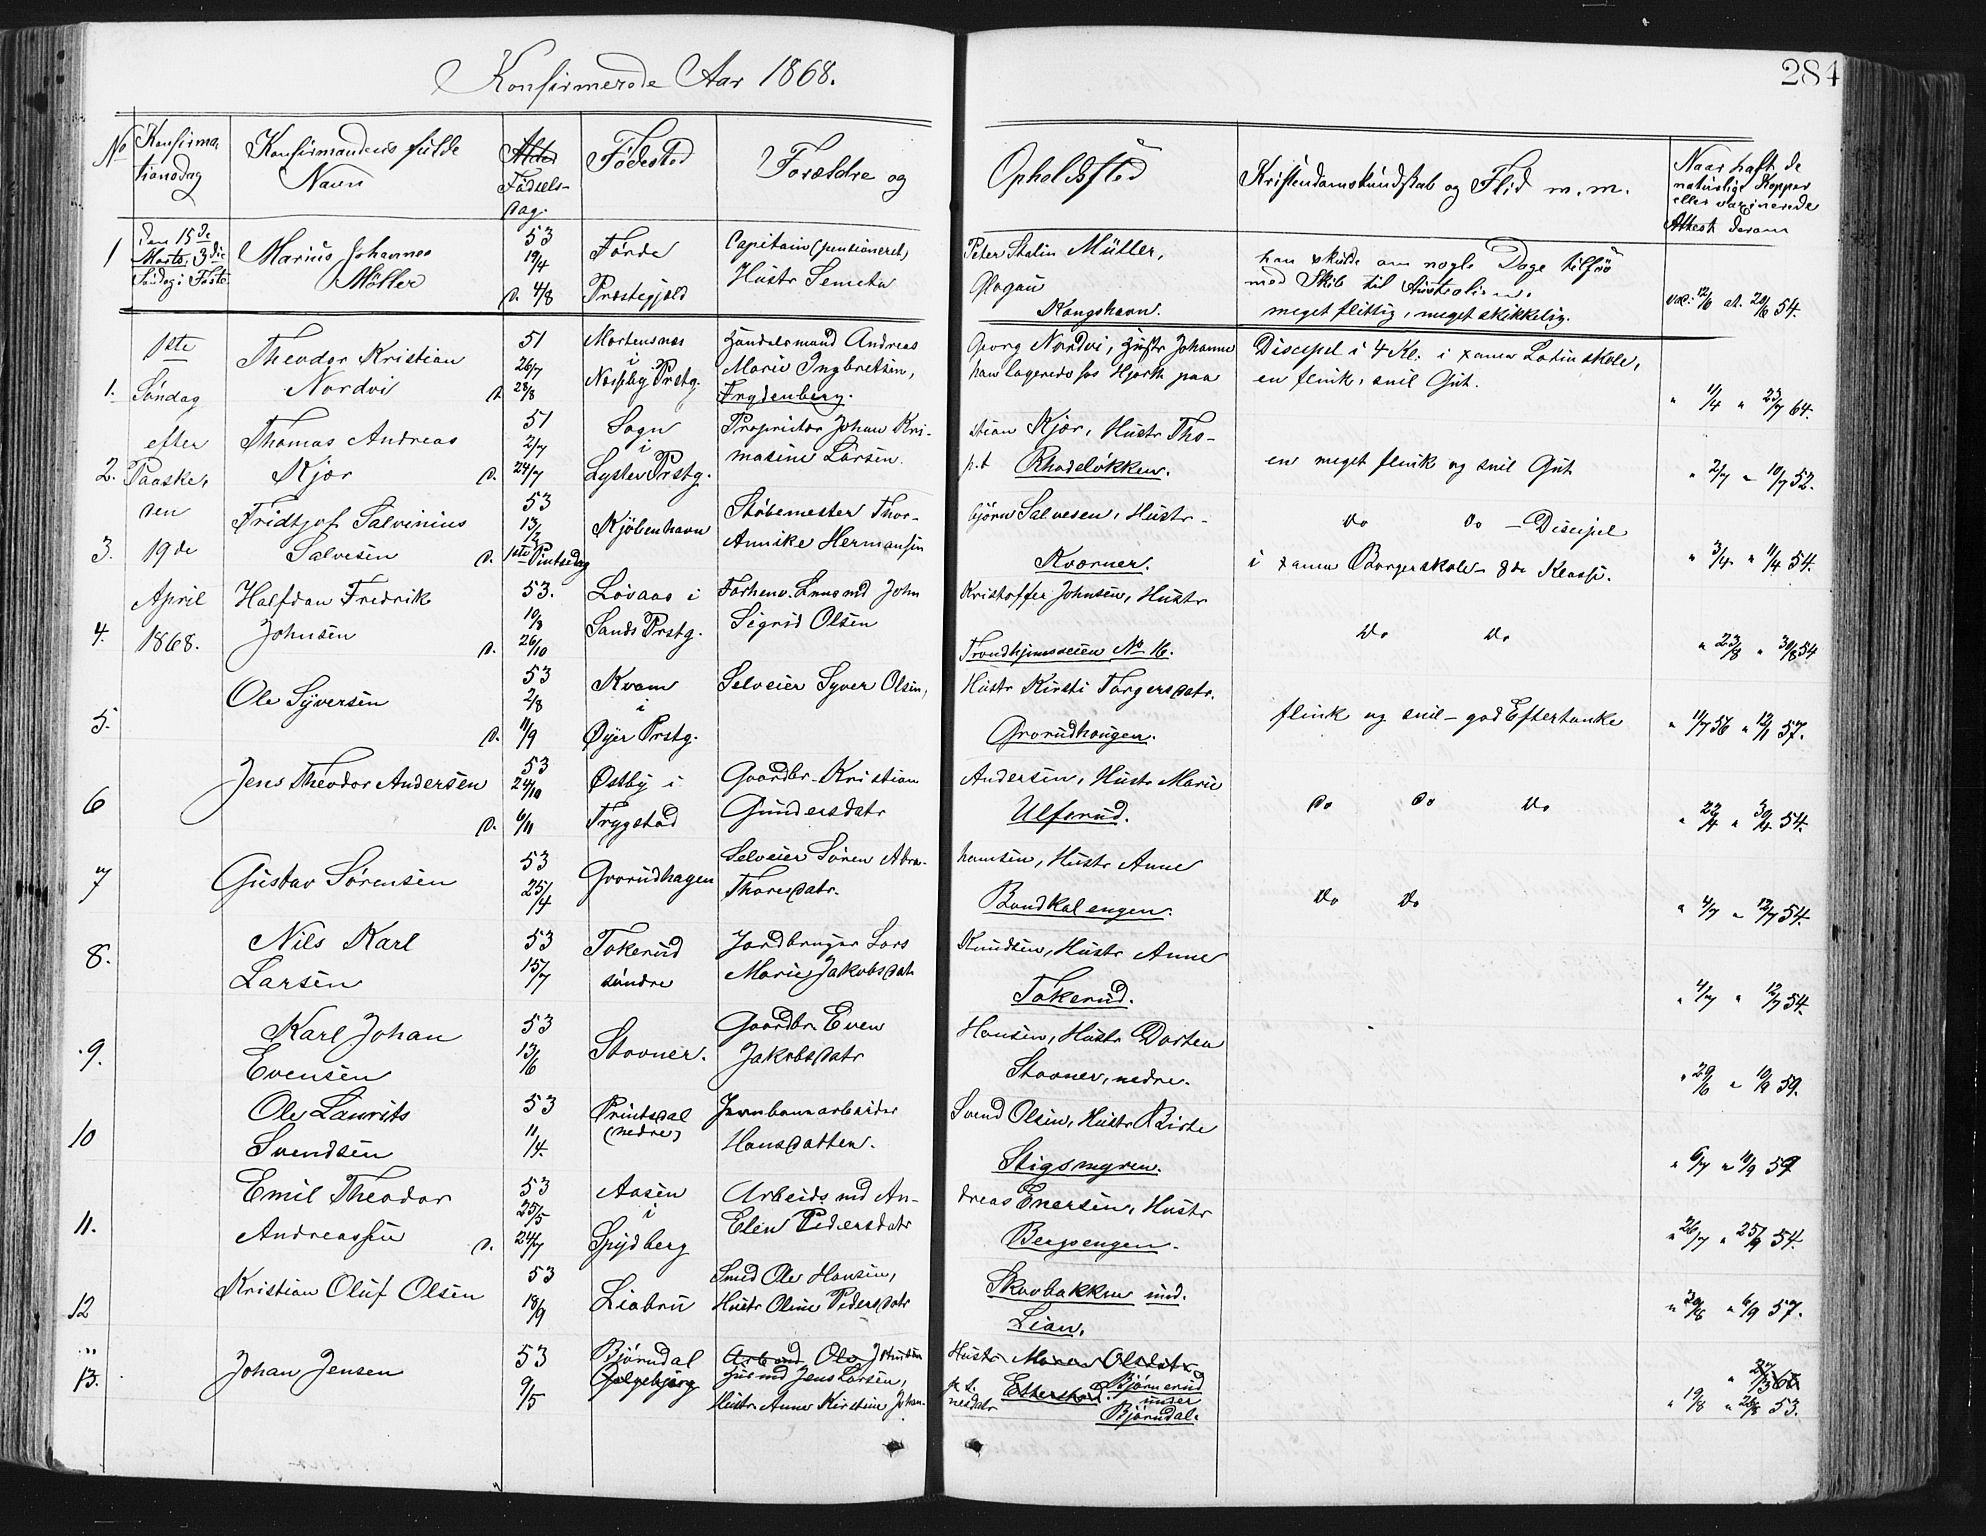 284
Konfirmerede Aar 1868.
No Konfirma- tionsdag Konfirmandens fulde Navn Alder Fødsels- dag. Fødested Forældre og Opholdssted Kristendomskundskab og Flid m. m. Naar haft de naturlige Kopper eller vaxinerede Attest derom
1 Den 15de Marts, 3die Søndag i Faste Marius Johannes Møller 53 19/4 d. 4/8 Førde Præstegjeld Capitain (pensioneret) Peter Stalin Müller,
Hustr Semeta Glogau Kongshavn.
han skulde om nogle Dage tilsøs
med Skib til Australien.
meget flittig, meget skikkelig. vac: 12/6 at. 20/6 54.
1. 1ste Søndag Theodor Kristian Nordvi 51 26/7 d. 28/8 Mortensnes i Nesseby Prstg. Handelsmand Andreas Georg Nordvi, Hustr Johanne
Marie Ingbretsen, han logerede hos Hjorth paa
Frydenberg.
Discipel i 4 Kl. i Xania Latinskole,
en flink, snil Gut. " 11/4 " 23/7 64.
2. efter Paaske, Thomas Andreas Kjær 51 2/7 d. 24/7 Sogn i Lyster Prstg. Proprietær Johan Kri- stian Kjær, Hustr Tho-
masine Larsen. p.t Rhodeløkken.
en meget flink og snil Gut " 2/7 " 10/7 52.
3. den 19de Fridtjof Salvinius Salvesen 53 13/2 d. 1ste Pintsedag Kjøbenhavn Støbemester Thor- bjørn Salvesen, Hustr
Annike Hermansen Kværner.
do do - Discipel
i Xania Borgerskole 8de Klasse. " 3/4 " 11/4 54.
4. April 1868. Halfdan Fredrik Johnsen 53. 10/8 d. 26/10 Løvaas i Sands Prstg. Forhenv. Lensmd John Kristoffer Johnsen, Hustr
Sigrid Olsen Trondhjemsveien No 16.
do do " 23/8 " 30/8 54
5. Ole Syversen 53 2/8 d. 11/9 Kvam i Øyer Prstg. Selveier Syver Olsen, Hustr Kirsti Torgersdatr.
Grorudhaugen.
flink og snil - god Eftertanke " 11/7 56 " 12/1 57.
6 Jens Theodor Andersen 53 24/10 d. 6/11 Østby i Trygstad Gaardbr. Kristian Andersen, Hustr Marie
Gundersdatr Ulfsrud.
do do do " 22/4 " 30/4 54.
7 Gustav Sørensen 53 25/4 Grorudhagen Selveier Søren Abra- hamsen, Hustr Anne
Thoresdatr. Bondkalengen.
do do " 4/7 " 12/7 54.
8. Nils Karl Larsen 53 15/7 Tokerud søndre Jordbruger Lars Knudsen, Hustr Anne
Marie Jakobsdatr Tokerud. " 4/7 " 12/7 54.
9. Karl Johan Evensen 53 13/6 Stovner. Gaardbr. Even Hansen, Hustr Dorten
Jakobsdatr Stovner, nedre. " 29/6 " 10/9 59.
10 Ole Laurits Svendsen 53 11/4. Printsdal (nedre) Jernbanearbeider Svend Olsen, Hustr Birte
Hansdatten. Stigsmyren. " 6/7 " 10/9 59
11. Emil Theodor Andreassen 53 25/5 d. 24/7 Aasen i Spydberg Arbeidsmd An- dreas Enersen, Hustr
Elen Pedersdatr Bergsengen. " 26/7 " 25/9 54.
12 Kristian Oluf Olsen 53 18/9 Liabru Smed Ole Hansen, Skovbakken und.
Hustr Oline Pedersdatr Lian. " 20/8 " 6/9 57.
13. Johan Jensen 53 9/5 Bjørndal Arbmd. Ole Johnsen Hustr Maren Olsdatr
Husmd Jens Larsen, p. t. Etterstad. Bjørnerud
Hustr Anne Kirstine Johan- nesdatr under
Bjørndal. " 19/8 " 26/8 53.